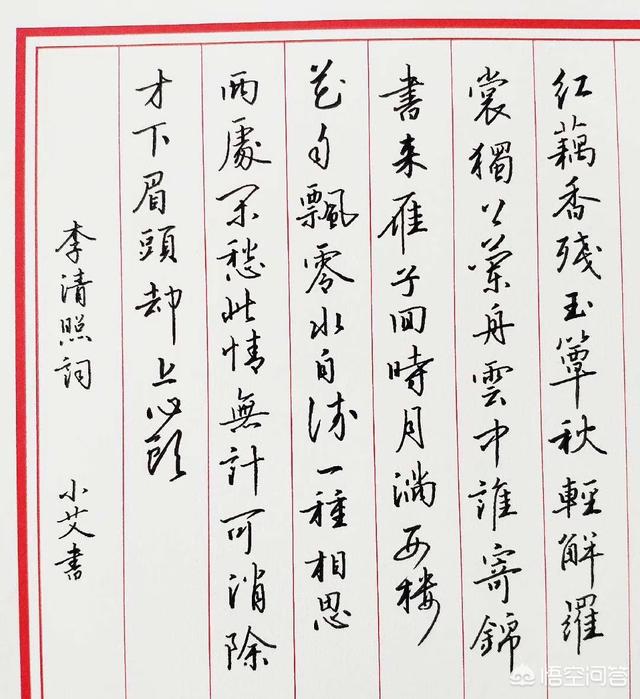 红藕香残玉簟秋輕解羅
裳獨上蘭舟雲中誰寄錦
書来雁字回時月滿西楼
花自飄零水自流一種相思
两處闲愁此情無計可消除
才下眉頭却上心頭
李清照詞 小艾書
悟空问答